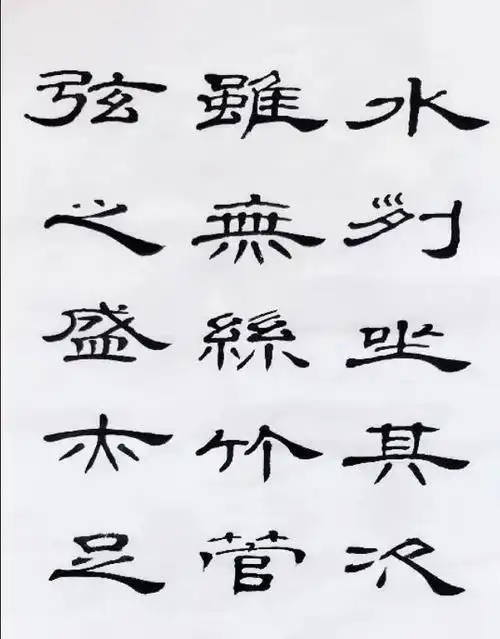 水列坐其次
雖無絲竹管
弦之盛亦足